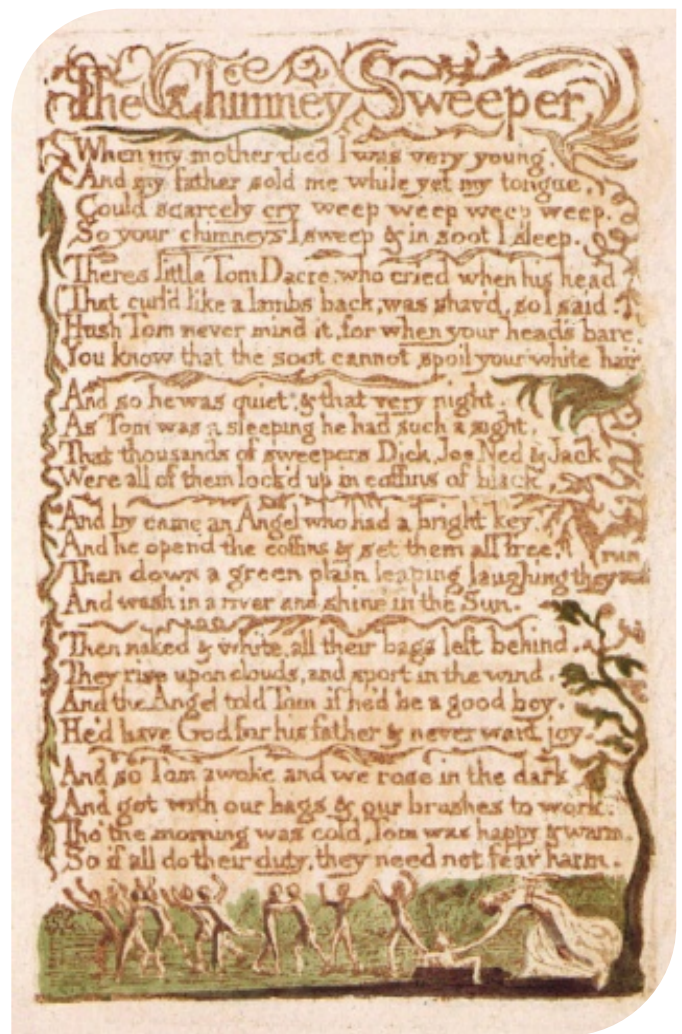 The Chimney Sweeper
When my mother died I was very young,
And my father sold me while yet my tongue,
Could scarcely cry weep weep weep weep.
So your chimneys I sweep & in soot I sleep.
Theres little Tom Dacre, who cried when his head
That curl'd like a lambs back, was shav'd, so I said.
Hush Tom never mind it, for when your head's bare,
You know that the soot cannot spoil your white hair
And so he was quiet, & that very night.
As Tom was a sleeping he had such a sight
That thousands of sweepers Dick, Joe, Ned & Jack
Were all of them lock'd up in coffins of black,
And by came an Angel who had a bright key,
And he open'd the coffins & set them all free.
Then down a green plain leaping laughing they run
And wash in a river and shine in the Sun.
Then naked & white, all their bags left behind,
They rise upon clouds, and sport in the wind.
And the Angel told Tom if he'd be a good boy,
He'd have God for his father & never want joy.
And so Tom awoke and we rose in the dark
And got with our bags & our brushes to work.
Tho' the morning was cold, Tom was happy & warm.
So if all do their duty, they need not fear harm.